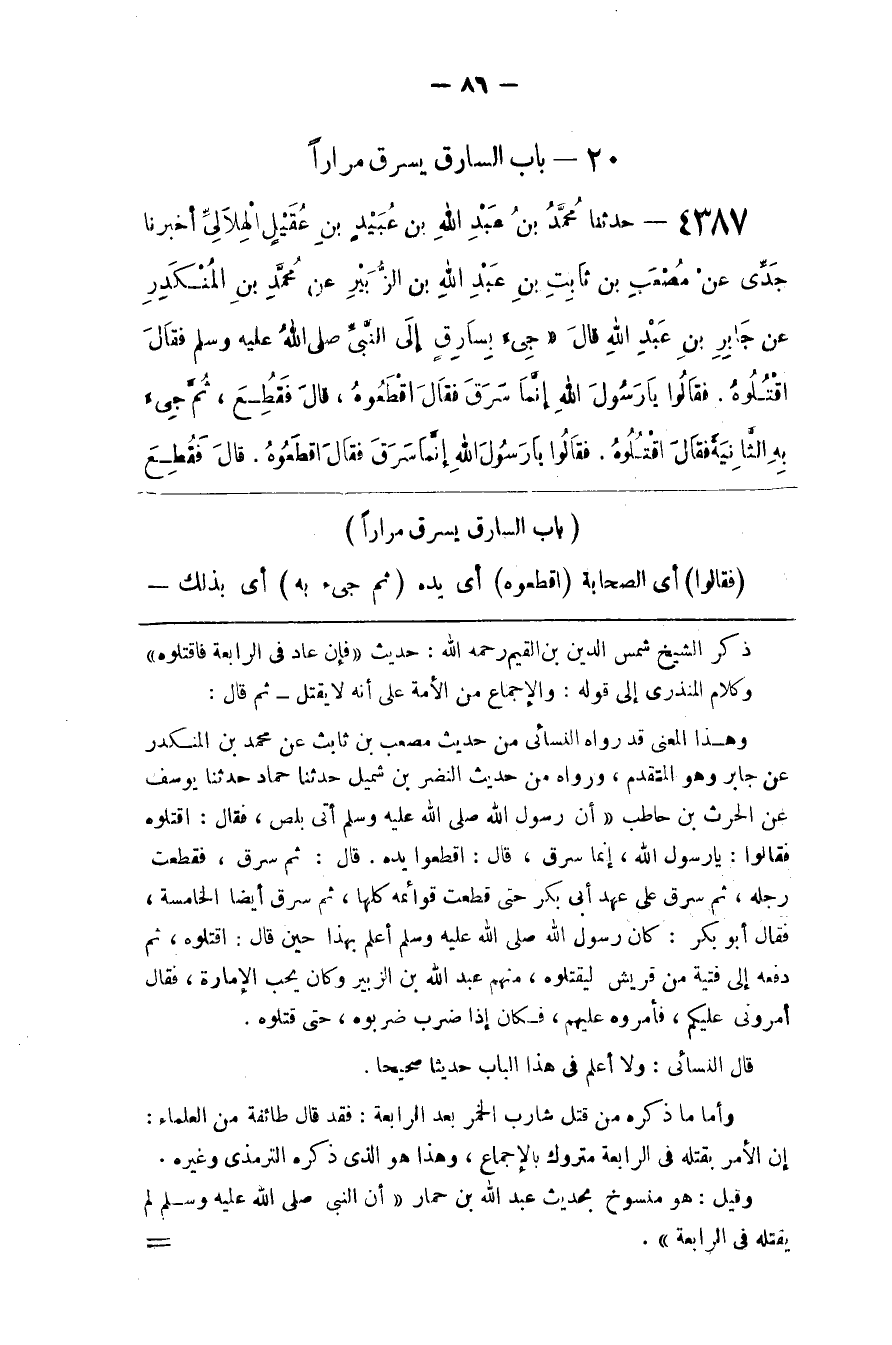 — ٨٦ —
٢٠ — باب السارق يسرق مراراً
٤٣٨٧ — حدثنا مُحَمَّدُ بنُ عَبْدِ اللهِ بن عُبَيْدِ بنِ عُقَيْلٍ الْهِلاَلِيِّ أخبرنا
جَدِّى عن مُصْعَبِ بن ثَابِتِ بنِ عَبْدِ اللهِ بن الزُّبَيْرِ عن مُحمَّدِ بن المُنْـكَدِرِ
عن جَابِرِ بنِ عَبْدِ اللهِ قالَ « جِىء بِسَارِقٍ إلَى النَّبىِّ صلى اللهُ عليه وسلم فقالَ
اقْتُـلُوهُ . فقالُوا يَارَسُولَ اللهِ إنَّمَا سَرَقَ فقالَ اقْطَعُوهُ ، قال فَقُطِـعَ ، ثُمَّ جِىء
بِهِ الثَّانِيَةَ فقالَ اقْتُـلُوهُ . فقالُوا يَارَسُولَ اللهِ إنَّمَا سَرَقَ فقالَ اقطَعُوهُ . قال فَقُطِـعَ
( باب السارق يسرق مراراً )
(فقالوا) أى الصحابة (اقطعوه) أى يده (ثم جىء به ) أى بذلك —
ذكر الشيخ شمس الدين بن القيم رحمه الله : حديث «فإن عاد فى الرابعة فاقتلوه»
وكلام المنذرى إلى قوله : والإجماع من الأمة على أنه لايقتل ـ ثم قال :
وهـذا المعنى قد رواه النسائى من حديث مصعب بن ثابث عن محمد بن المنـكدر
عن جابر وهو المتقدم ، ورواه من حديث النضر بن شميل حدثنا حماد حدثنا يوسف
عن الحرث بن حاطب « أن رسول الله صلى الله عليه وسلم أتى بلص ، فقال : اقتلوه
فقالوا : يارسول الله ، إنما سرق ، قال : اقطعوا يده . قال : ثم سرق ، فقطعت
رجله ، ثم سرق على عهد أبى بكر حتى قطعت قوائمه كلها ، ثم سرق أيضا الخامسة ،
فقال أبو بكر : كان رسول الله صلى الله عليه وسلم أعلم بهذا حين قال : اقتلوه ، ثم
دفعه إلى فتية من قريش ليقتلوه ، منهم عبد الله بن الزبير وكان يحب الإمارة ، فقال
أمرونى عليكم ، فأمروه عليهم ، فـكان إذا ضرب ضربوه ، حتى قتلوه .
قال النسائى : ولا أعلم فى هذا الباب حديثا صحيحا .
وأما ما ذكره من قتل شارب الخمر بعد الرابعة : فقد قال طائفة من العلماء :
إن الأمر بقتله فى الرابعة متروك بالإجماع ، وهذا هو الذى ذكره الترمذى وغيره .
وقيل : هو منسوخ بحديث عبد الله بن حمار « أن النبى صلى الله عليه وسـلم لم
يقتله فى الرابعة » .
=